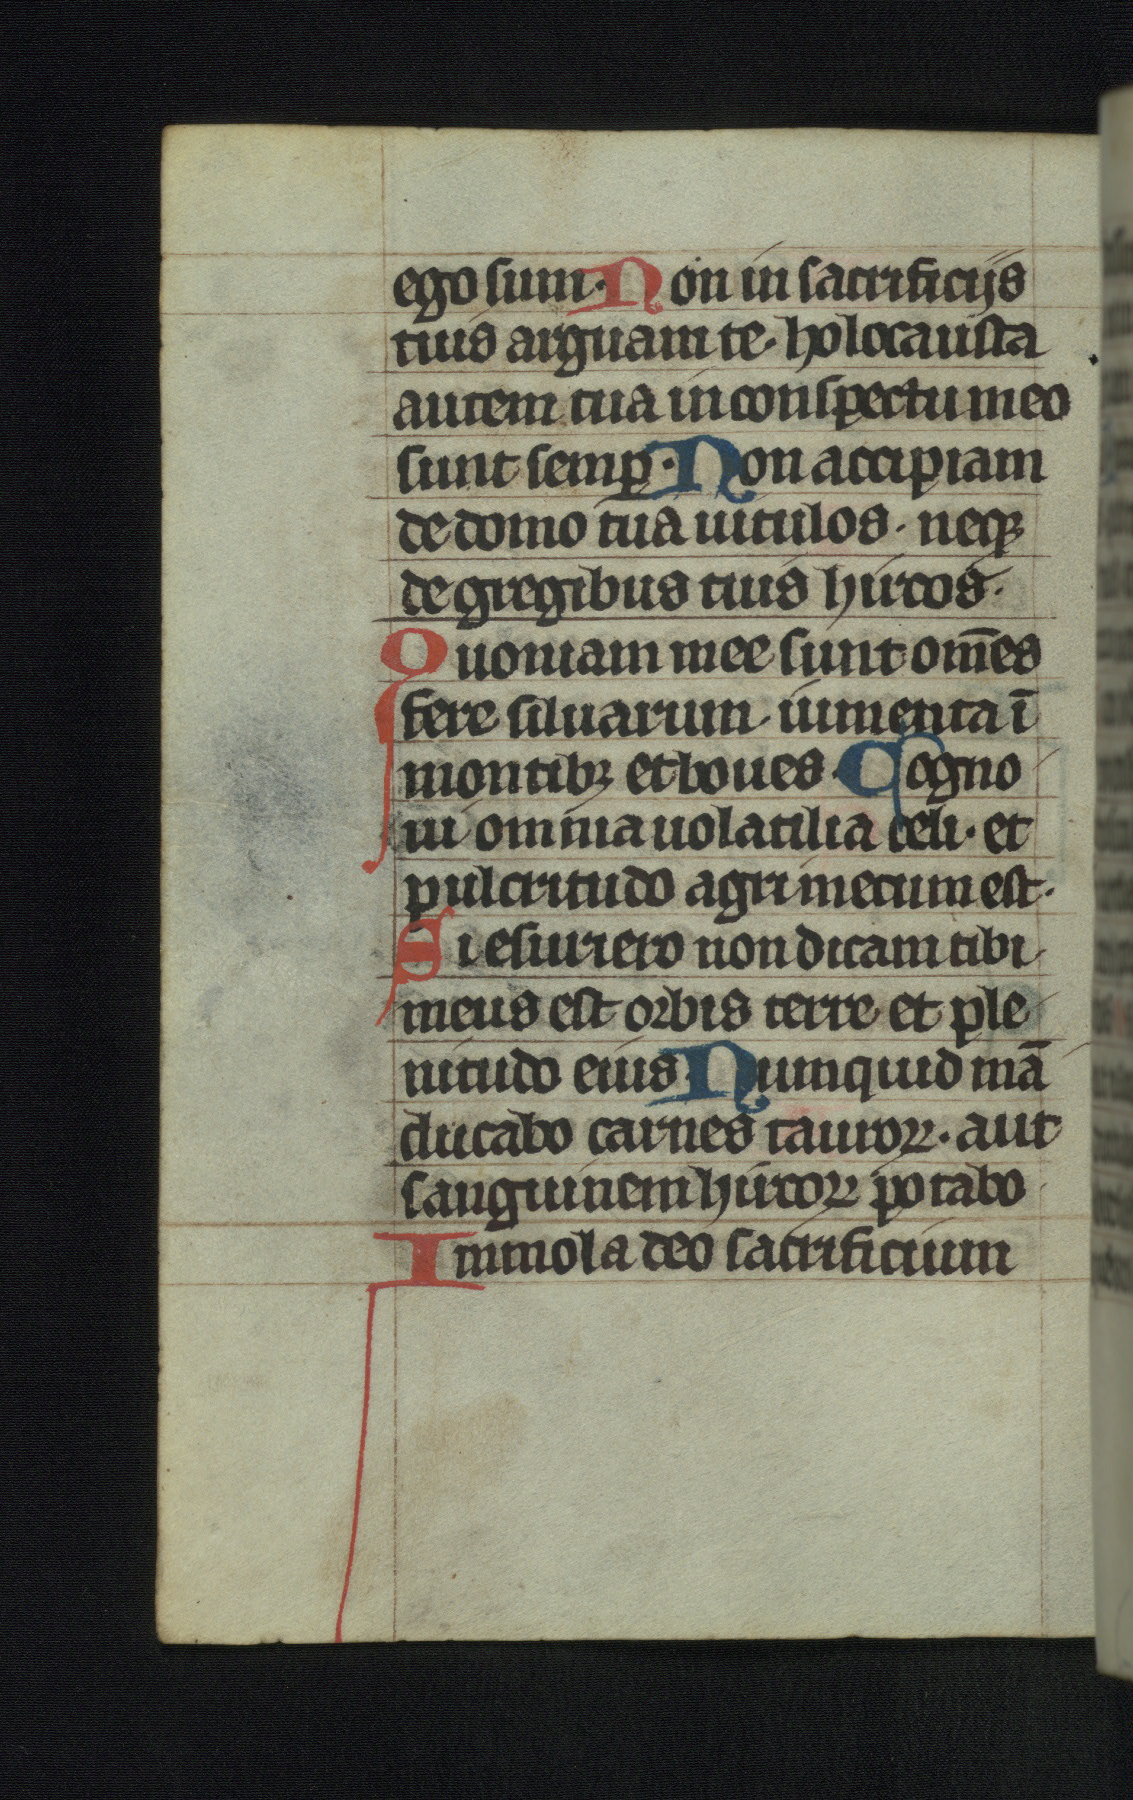 ego sum· Non in sacrificijs
tuis arguam te· holocausta
autem tua in conspectu meo
sunt semꝑ· Non accipiam
de domo tua uitulos· neqꝫ
de gregibus tuis hircos·
Quoniam mee sunt om̄es
fere siluarum· iumenta ī
montibꝫ et boues· Cogno
ui omnia uolatilia celi· et
pulcritudo agri mecum est·
Si esuriero non dicam tibi
meus est orbis terre et ple
nitudo eius Numquid mā
ducabo carnes tauroꝝ· aut
sanguinem hircoꝝ potabo
Immola deo sacrificium